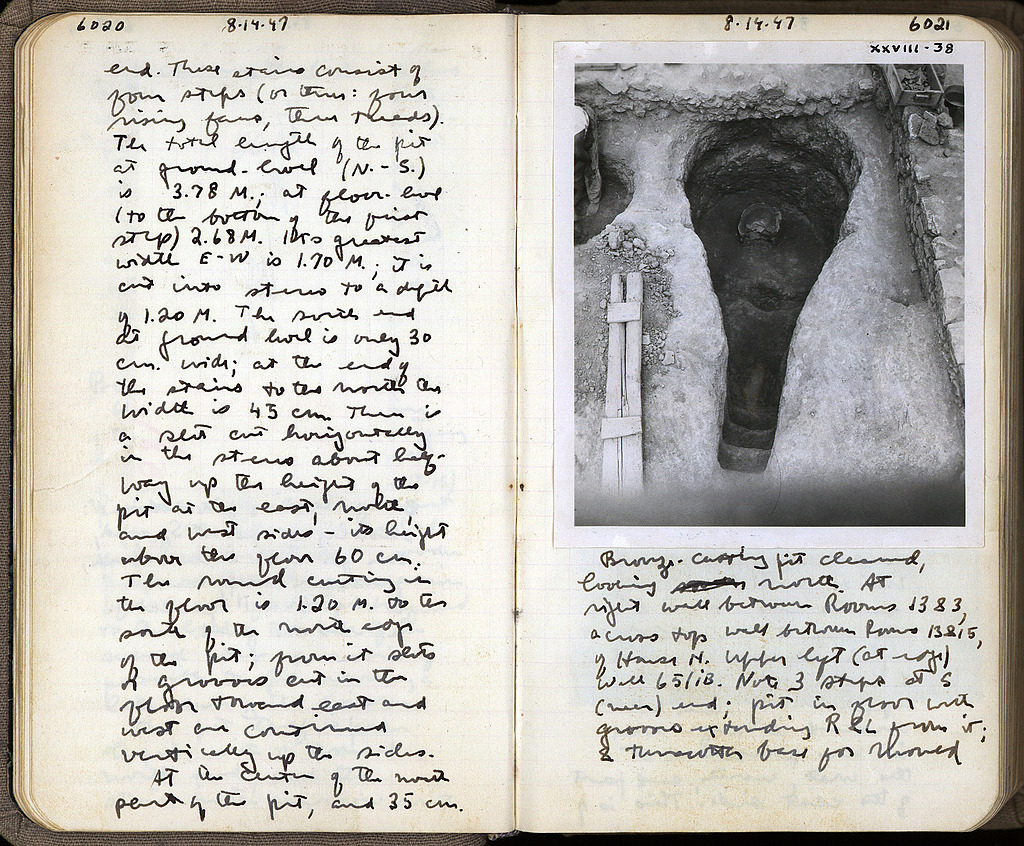 6020 8·14·47
end. These stairs consist of
four steps (or then: four
rising faces, three treads).
The total length of the pit
at ground-level (N.-S.)
is 3.78 M.; at floor-level
(to the bottom of the first
step) 2.68 M. Its greatest
width E-W is 1.70 M.; it is
cut into stereo to a depth
of 1.20 M. The south end
at ground level is only 30
cm. wide; at the end of
the stairs to the north the
width is 45 cm. There is
a slit cut horizontally
in the stereo about half-
way up the height of the
pit at the east, north,
and west sides – its height
above the floor 60 cm.
The round cutting in
the floor is 1.20 M. to the
south of the north edge
of the pit; from it slots
or grooves cut in the
floor toward east and
west are continued
vertically up the sides.
At the center of the north
part of the pit, and 35 cm.
8·14·47 6021
XXVIII-38
Bronze-casting pit cleaned,
looking north. At
right wall between Rooms 1383,
across top wall between Rooms 138/5,
of House N. Upper left (at edge)
Well 65/1B. Note 3 steps at S
(near) end; pit in floor with
grooves extending R & L from it;
& terracotta base for mould